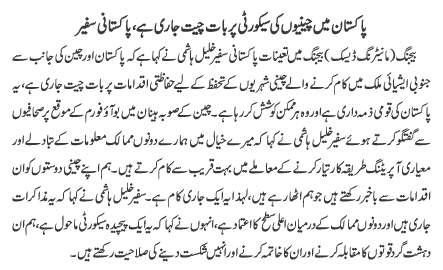 پاکستان میں چینیوں کی سیکورٹی پر بات چیت جاری ہے، پاکستانی سفیر
بیجنگ (مانیٹرنگ ڈیسک) بیجنگ میں تعینات پاکستانی سفیر خلیل ہاشمی نے کہا ہے کہ پاکستان اور چین کی جانب سے
جنوبی ایشیائی ملک میں کام کرنے والے چینی شہریوں کے تحفظ کے لیے حفاظتی اقدامات پر بات چیت جاری ہے، یہ
پاکستان کی قومی ذمہ داری ہے اور وہ ہر ممکن کوشش کر رہا ہے۔ چین کے صوبہ ہینان میں بواؤ فورم کے موقع پر صحافیوں
سے گفتگو کرتے ہوئے سفیر خلیل ہاشمی نے کہا کہ میرے خیال میں ہمارے دونوں ممالک معلومات کے تبادلے اور
معیاری آپریٹنگ طریقہ کار تیار کرنے کے معاملے میں بہت قریب سے کام کرتے ہیں۔ ہم اپنے چینی دوستوں کو ان
اقدامات سے باخبر رکھتے ہیں جو ہم اٹھا رہے ہیں، لہذا یہ ایک جاری کام ہے۔ سفیر خلیل ہاشمی نے کہا کہ یہ مذاکرات
جاری ہیں اور دونوں ممالک کے درمیان اعلی سطح کا اعتماد ہے، انہوں نے کہا کہ یہ ایک پیچیدہ سیکورٹی ماحول ہے، ہم ان
دہشت گرد قوتوں کا مقابلہ کرنے اور ان کا خاتمہ کرنے اور انہیں شکست دینے کی صلاحیت رکھتے ہیں۔